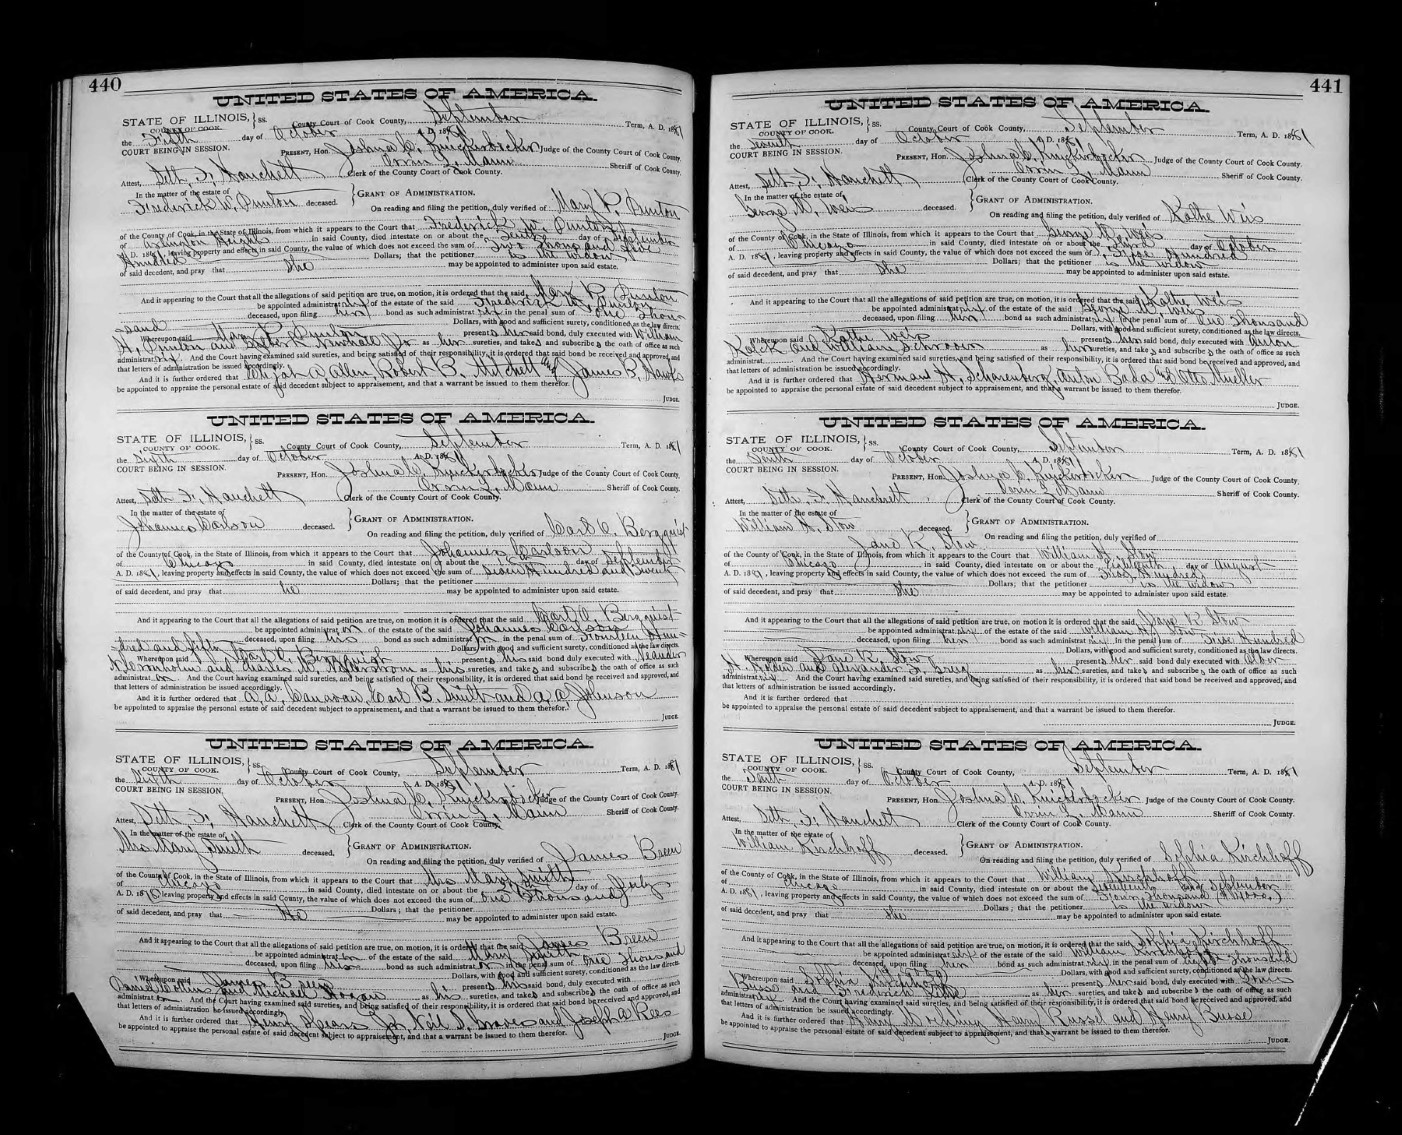 440
UNITED STATES OF AMERICA.
STATE OF ILLINOIS, } ss.
COUNTY OF COOK.
County Court of Cook County, September Term, A. D. 1887
the Fifth day of October A. D. 1887
COURT BEING IN SESSION.
PRESENT, Hon. Joshua C. Knickerbocker Judge of the County Court of Cook County.
Orrin L. Mann Sheriff of Cook County.
Attest, Seth F. Hanchett Clerk of the County Court of Cook County.
In the matter of the estate of
Frederick W. Dunton deceased. } GRANT OF ADMINISTRATION.
On reading and filing the petition, duly verified of Mary P. Dunton
of the County of Cook, in the State of Illinois, from which it appears to the Court that Frederick W. Dunton
of Arlington Heights in said County, died intestate on or about the day of September
A. D. 188, leaving property and effects in said County, the value of which does not exceed the sum of Two Thousand Five
Hundred Dollars; that the petitioner is the widow
of said decedent, and pray that she may be appointed to administer upon said estate.
And it appearing to the Court that all the allegations of said petition are true, on motion, it is ordered that the said Mary P. Dunton
be appointed administratrix of the estate of the said Frederick W. Dunton
deceased, upon filing her bond as such administratrix in the penal sum of One Thou-
sand Dollars, with good and sufficient surety, conditioned as the law directs.
Whereupon said Mary P. Dunton presents her said bond, duly executed with William
H. Dunton and as her sureties, and takes and subscribes the oath of office as such
administratrix. And the Court having examined said sureties, and being satisfied of their responsibility, it is ordered that said bond be received and approved, and
that letters of administration be issued accordingly.
And it is further ordered that A. Allen, Robert B. Mitchell & James P.
be appointed to appraise the personal estate of said decedent subject to appraisement, and that a warrant be issued to them therefor.
JUDGE.
UNITED STATES OF AMERICA.
STATE OF ILLINOIS, } ss.
COUNTY OF COOK.
County Court of Cook County, September Term, A. D. 1887
the Sixth day of October A. D. 1887
COURT BEING IN SESSION.
PRESENT, Hon. Joshua C. Knickerbocker Judge of the County Court of Cook County.
Orrin L. Mann Sheriff of Cook County.
Attest, Seth F. Hanchett Clerk of the County Court of Cook County.
In the matter of the estate of
Johannes Carlson deceased. } GRANT OF ADMINISTRATION.
On reading and filing the petition, duly verified of Carl C. Bergquist
of the County of Cook, in the State of Illinois, from which it appears to the Court that Johannes Carlson
of Chicago in said County, died intestate on or about the day of September
A. D. 1887, leaving property and effects in said County, the value of which does not exceed the sum of Seven Hundred and Twenty
Dollars; that the petitioner
of said decedent, and pray that he may be appointed to administer upon said estate.
And it appearing to the Court that all the allegations of said petition are true, on motion, it is ordered that the said Carl C. Bergquist
be appointed administrator of the estate of the said Johannes Carlson
deceased, upon filing his bond as such administrator in the penal sum of Fourteen Hun-
dred and fifty Dollars, with good and sufficient surety, conditioned as the law directs.
Whereupon said Carl C. Bergquist presents his said bond, duly executed with
and Charles as his sureties, and takes and subscribes the oath of office as such
administrator. And the Court having examined said sureties, and being satisfied of their responsibility, it is ordered that said bond be received and approved, and
that letters of administration be issued accordingly.
And it is further ordered that Carl B. Smith and A. A. Johnson
be appointed to appraise the personal estate of said decedent subject to appraisement, and that a warrant be issued to them therefor.
JUDGE.
UNITED STATES OF AMERICA.
STATE OF ILLINOIS, } ss.
COUNTY OF COOK.
County Court of Cook County, September Term, A. D. 1887
the Sixth day of October A. D. 1887
COURT BEING IN SESSION.
PRESENT, Hon. Joshua C. Knickerbocker Judge of the County Court of Cook County.
Orrin L. Mann Sheriff of Cook County.
Attest, Seth F. Hanchett Clerk of the County Court of Cook County.
In the matter of the estate of
Mrs Mary Smith deceased. } GRANT OF ADMINISTRATION.
On reading and filing the petition, duly verified of James Breen
of the County of Cook, in the State of Illinois, from which it appears to the Court that Mrs Mary Smith
of Chicago in said County, died intestate on or about the day of July
A. D. 188, leaving property and effects in said County, the value of which does not exceed the sum of One Thousand
Dollars; that the petitioner
of said decedent, and pray that he may be appointed to administer upon said estate.
And it appearing to the Court that all the allegations of said petition are true, on motion, it is ordered that the said James Breen
be appointed administrator of the estate of the said Mary Smith
deceased, upon filing his bond as such administrator in the penal sum of One Thousand
Dollars, with good and sufficient surety, conditioned as the law directs.
Whereupon said James Breen presents his said bond, duly executed with
and Michael as his sureties, and takes and subscribes the oath of office as such
administrator. And the Court having examined said sureties, and being satisfied of their responsibility, it is ordered that said bond be received and approved, and
that letters of administration be issued accordingly.
And it is further ordered that Henry and Joseph A. Rees
be appointed to appraise the personal estate of said decedent subject to appraisement, and that a warrant be issued to them therefor.
JUDGE.
441
UNITED STATES OF AMERICA.
STATE OF ILLINOIS, } ss.
COUNTY OF COOK.
County Court of Cook County, September Term, A. D. 1887
the day of October A. D. 1887
COURT BEING IN SESSION.
PRESENT, Hon. Joshua C. Knickerbocker Judge of the County Court of Cook County.
Orrin L. Mann Sheriff of Cook County.
Attest, Seth F. Hanchett Clerk of the County Court of Cook County.
In the matter of the estate of
George M. Weis deceased. } GRANT OF ADMINISTRATION.
On reading and filing the petition, duly verified of Kathe Weis
of the County of Cook, in the State of Illinois, from which it appears to the Court that George M. Weis
of Chicago in said County, died intestate on or about the Third day of October
A. D. 1887, leaving property and effects in said County, the value of which does not exceed the sum of Five Hundred
Dollars; that the petitioner is the widow
of said decedent, and pray that she may be appointed to administer upon said estate.
And it appearing to the Court that all the allegations of said petition are true, on motion, it is ordered that the said Kathe Weis
be appointed administratrix of the estate of the said George M. Weis
deceased, upon filing her bond as such administratrix in the penal sum of One Thousand
Dollars, with good and sufficient surety, conditioned as the law directs.
Whereupon said Kathe Weis presents her said bond, duly executed with Anton
and William as her sureties, and takes and subscribes the oath of office as such
administrat And the Court having examined said sureties, and being satisfied of their responsibility, it is ordered that said bond be received and approved, and
that letters of administration be issued accordingly.
And it is further ordered that Herman H. Scharenberg, Anton Bada & Otto Mueller
be appointed to appraise the personal estate of said decedent subject to appraisement, and that a warrant be issued to them therefor.
JUDGE.
UNITED STATES OF AMERICA.
STATE OF ILLINOIS, } ss.
COUNTY OF COOK.
County Court of Cook County, September Term, A. D. 1887
the Tenth day of October A. D. 1887
COURT BEING IN SESSION.
PRESENT, Hon. Joshua C. Knickerbocker Judge of the County Court of Cook County.
Orrin L. Mann Sheriff of Cook County.
Attest, Seth F. Hanchett Clerk of the County Court of Cook County.
In the matter of the estate of
William H. Stow deceased. } GRANT OF ADMINISTRATION.
On reading and filing the petition, duly verified of
Jane R. Stow
of the County of Cook, in the State of Illinois, from which it appears to the Court that William H. Stow
of Chicago in said County, died intestate on or about the Eighteenth day of August
A. D. 1887, leaving property and effects in said County, the value of which does not exceed the sum of Hundred
Dollars; that the petitioner is the widow
of said decedent, and pray that she may be appointed to administer upon said estate.
And it appearing to the Court that all the allegations of said petition are true, on motion, it is ordered that the said Jane R. Stow
be appointed administratrix of the estate of the said William H. Stow
deceased, upon filing her bond as such administratrix in the penal sum of Five Hundred
Dollars, with good and sufficient surety, conditioned as the law directs.
Whereupon said Jane R. Stow presents her said bond, duly executed with
and Alexander as her sureties, and takes and subscribes the oath of office as such
administratrix. And the Court having examined said sureties, and being satisfied of their responsibility, it is ordered that said bond be received and approved, and
that letters of administration be issued accordingly.
And it is further ordered that
be appointed to appraise the personal estate of said decedent subject to appraisement, and that a warrant be issued to them therefor.
JUDGE.
UNITED STATES OF AMERICA.
STATE OF ILLINOIS, } ss.
COUNTY OF COOK.
County Court of Cook County, September Term, A. D. 1887
the Tenth day of October A. D. 1887
COURT BEING IN SESSION.
PRESENT, Hon. Joshua C. Knickerbocker Judge of the County Court of Cook County.
Orrin L. Mann Sheriff of Cook County.
Attest, Seth F. Hanchett Clerk of the County Court of Cook County.
In the matter of the estate of
William Kirchhoff deceased. } GRANT OF ADMINISTRATION.
On reading and filing the petition, duly verified of Sophia Kirchhoff
of the County of Cook, in the State of Illinois, from which it appears to the Court that William Kirchhoff
of Chicago in said County, died intestate on or about the Seventeenth day of September
A. D. 1887, leaving property and effects in said County, the value of which does not exceed the sum of Four Thousand ($4000.)
Dollars; that the petitioner is the widow
of said decedent, and pray that she may be appointed to administer upon said estate.
And it appearing to the Court that all the allegations of said petition are true, on motion, it is ordered that the said Sophia Kirchhoff
be appointed administratrix of the estate of the said William Kirchhoff
deceased, upon filing her bond as such administratrix in the penal sum of Eight Thousand
Dollars, with good and sufficient surety, conditioned as the law directs.
Whereupon said Sophia Kirchhoff presents her said bond, duly executed with
Busse and Frederick as her sureties, and takes and subscribes the oath of office as such
administratrix. And the Court having examined said sureties, and being satisfied of their responsibility, it is ordered that said bond be received and approved, and
that letters of administration be issued accordingly.
And it is further ordered that Henry Henry Russel and Henry Busse
be appointed to appraise the personal estate of said decedent subject to appraisement, and that a warrant be issued to them therefor.
JUDGE.